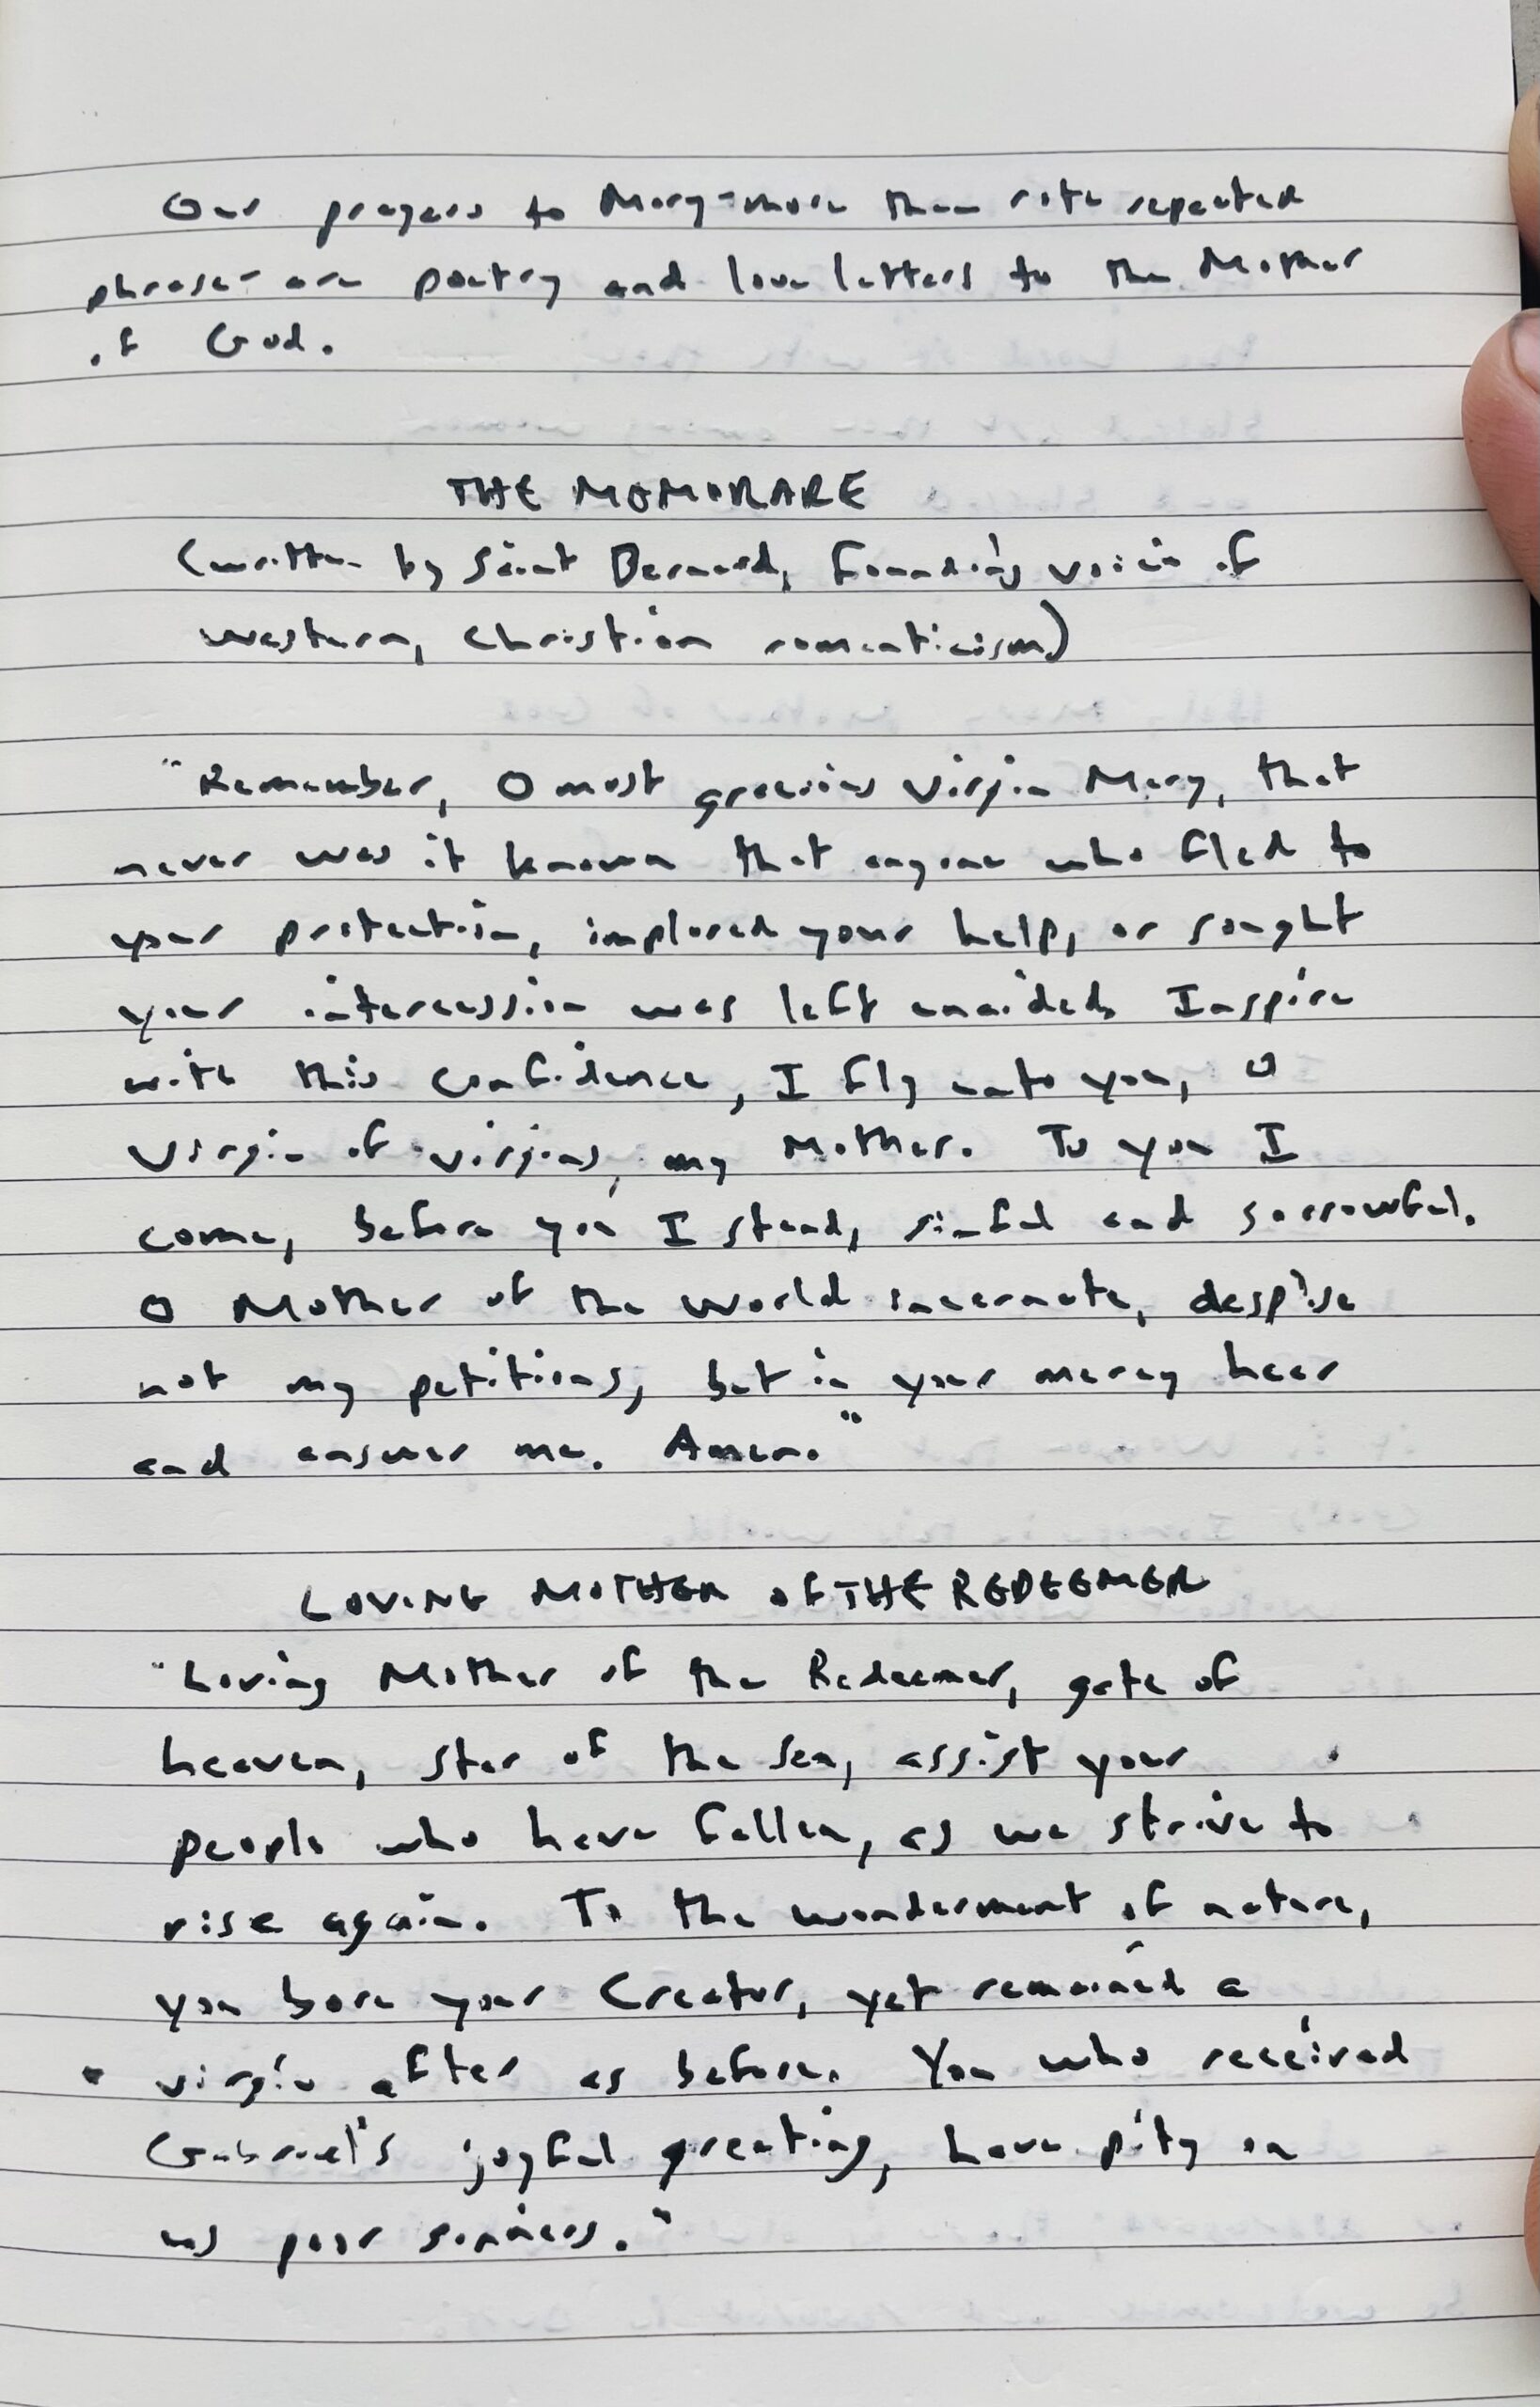 Our prayers to Mary-more than rote repeated
phrases-are poetry and love letters to the Mother
of God.
THE MEMORARE
(written by Saint Bernard, founding voice of
western, Christian romanticism)
"Remember, O most gracious Virgin Mary, that
never was it known that anyone who fled to
your protection, implored your help, or sought
your intercession was left unaided. Inspire
with this confidence, I fly unto you, O
Virgin of virgins, my Mother. To you I
come, before you I stand, sinful and sorrowful.
O Mother of the World incarnate, despise
not my petitions, but in your mercy hear
and answer me. Amen."
LOVING MOTHER OF THE REDEEMER
"Loving Mother of the Redeemer, gate of
heaven, star of the sea, assist your
people who have fallen, as we strive to
rise again. To the wonderment of nature,
you bore your Creator, yet remained a
virgin after as before. You who received
Gabriel's joyful greeting, have pity on
us poor sinners."